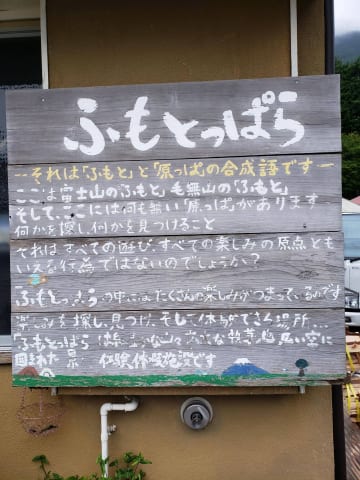 ふもとっぱら
--それは「ふもと」と「原っぱ」の合成語です--
ここは富士山の「ふもと」毛無山の「ふもと」
そして、ここには何も無い「原っぱ」があります
何かを探し、何かを見つけること
それはすべての遊び、すべての楽しみの原点とも
いえる行為ではないのでしょうか?
ふもとっぱらの中にはたくさんの楽しみがつまっているのです
楽しみを探し、見つけ、そして体感できる場所…
「ふもとっぱら」は 山々 広い空に
囲まれた 体験、休暇施設です